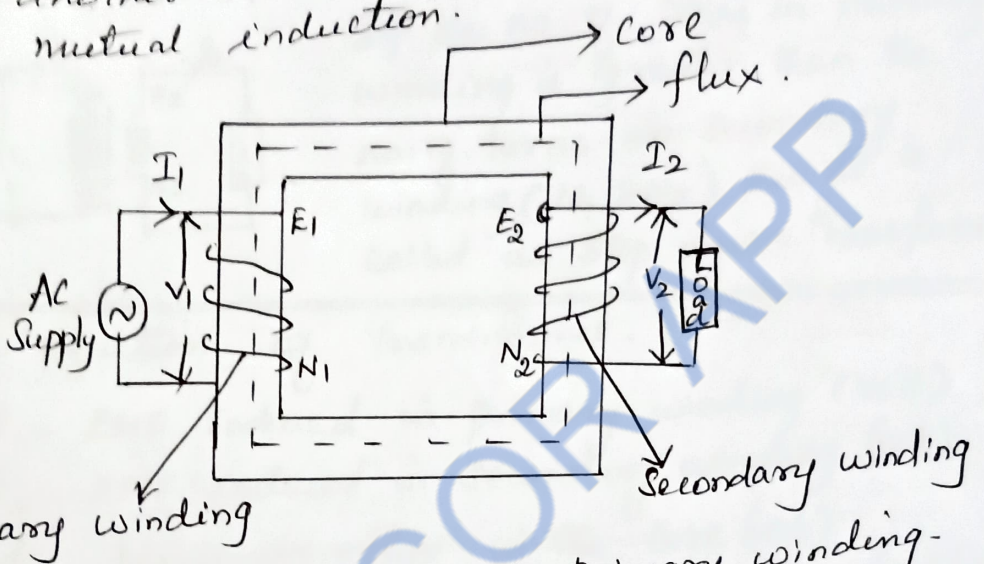 mutual induction.
core
flux.
I1
I2
E1
E2
AC
Supply
V1
V2
Load
N1
N2
Secondary winding
winding
winding-
COR APP